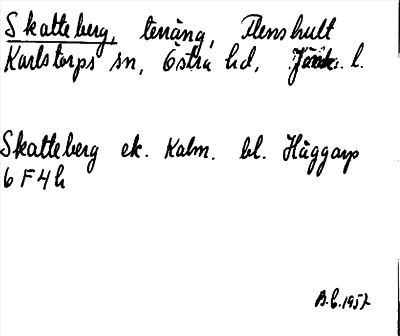 Skatteberg, teräng, Plenshult
Karlstorps sn, Östra hd, Jönk. l.
Skatteberg ek. Kalm. bl. Häggarp
6 F 4 h
B.E. 1957